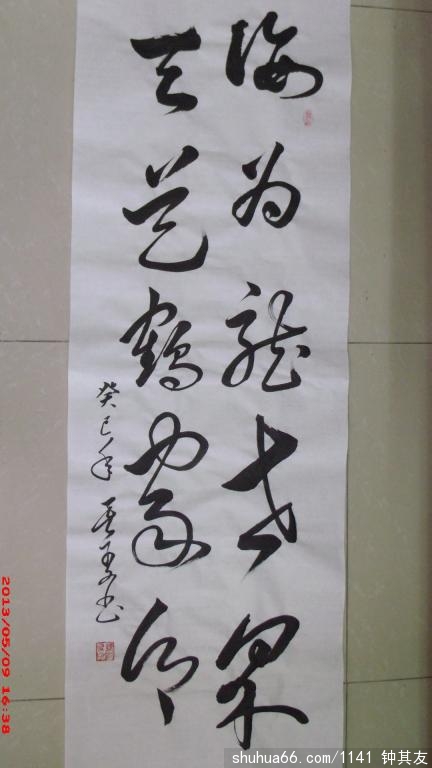 海为龙世界
天是鹤家乡
癸巳年 书
2013/05/09 16:38
shuhua66.com/1141 钟其友